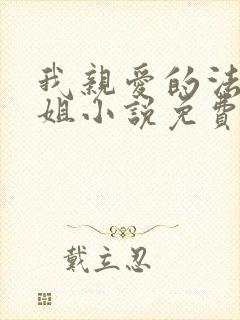 我親愛的法
姐小說免費
戴立忍